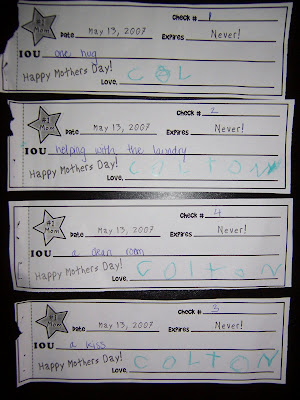 Check # 1
#1 Mom
Date May 13, 2007 Expires Never!
IOU one hug
Happy Mothers Day!
Love, COL
Check # 2
#1 Mom
Date May 13, 2007 Expires Never!
IOU helping with the laundry
Happy Mothers Day!
Love, COLTON
Check # 4
#1 Mom
Date May 13, 2007 Expires Never!
IOU a clean room
Happy Mothers Day!
Love, COLTON
Check # 3
#1 Mom
Date May 13, 2007 Expires Never!
IOU a kiss
Happy Mothers Day!
Love, COLTON